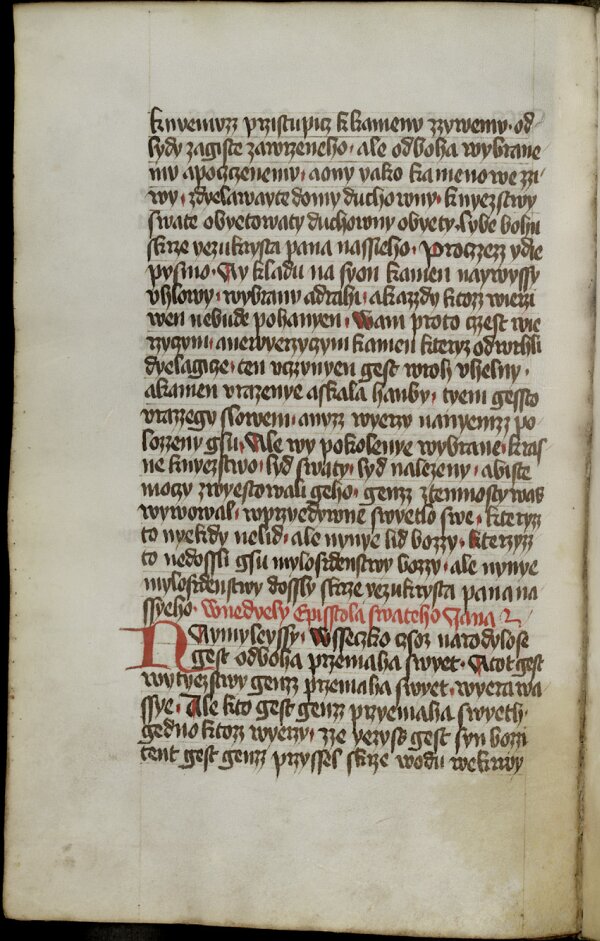 knyemuzz przistupicz kkamenv zzywemv· od
lydy zagiste zawrzeneho· ale odboha wybrane
mv apoczczenemv· aony yako kamenowe zzi
wy· zdyelawayte domy duchowny· knyezstwy
swate obyetowaty duchowny obyety· lybe bohu
skrze yezukrysta pana nassieho· Proczezz ydie
pysmo· Ay kladu na syon kamen naywyssy
vhlowy· wybrany adrahi· akazzdy ktozz wierzi
wen nebude pohanyen· Wam proto czest wie
rzyczym· anewyerzyczym kamen kteryz odwrhli
dyelagicze· ten vczynyen gest wroh vhelny·
akamen vrazenye askala hanby· tyem gessto
vrazzegy slowem· anyzz wyerzy nanyemzz po
lozzeny gsu· Ale wy pokolenye wybrane· kras
ne knyezstwo· lyd swaty· lyd nalezeny· abiste
moczy zwyestowali geho· genzz ztemnosty was
wywowal· wprzyedywne swyetlo swe· kteryzz
to nyekdy nelid· ale nynye lid bozzy· kterzyzz
to nedossli gsu mylosrdenstwy bozzy· ale nynye
mylosrdenstwy dossly skrze yezukrysta pana na
ssyeho· Wnedyely Episstola swateho Jana
NAymyleyssy· Wsseczko czoz narodylose
gest odboha przemaha swyet· Atot gest
wytyezstwy genzz przemaha swyet· wyera wa
ssye· Ale kto gest genzz przyemaha swyeth·
gedno ktozz wyerzy· zze yezyss gest syn bozzi
tent gest genzz przyssel skrze wodu wekrwy